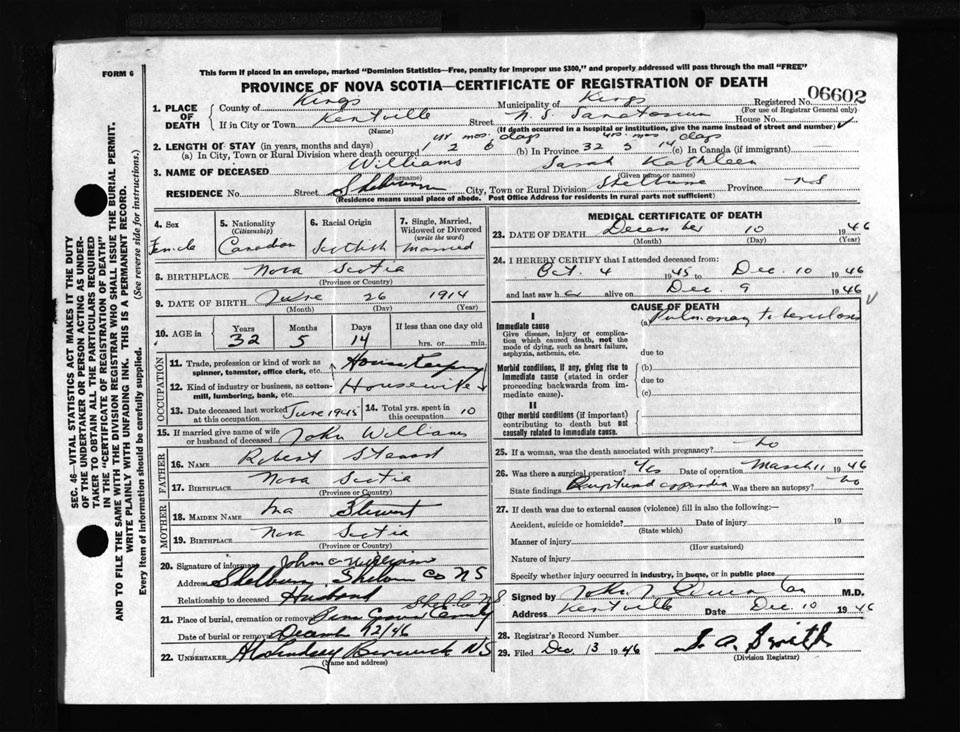 FORM 6
This form if placed in an envelope, marked "Dominion Statistics—Free, penalty for improper use $300," and properly addressed will pass through the mail "FREE"
PROVINCE OF NOVA SCOTIA—CERTIFICATE OF REGISTRATION OF DEATH
Registered No. 06602
(For use of Registrar General only)
1. PLACE OF DEATH
County of Kings Municipality of Kings
If in City or Town Kentville Street N. S. Sanatorium House No.
(Name) (If death occurred in a hospital or institution, give the name instead of street and number)
yr mos. days yrs. mos days
2. LENGTH OF STAY (in years, months and days)
(a) In City, Town or Rural Division where death occurred 1 2 6 (b) In Province 32 5 14 (c) In Canada (if immigrant) —
3. NAME OF DECEASED Williams Sarah Kathleen
(Surname) (Given name or names)
RESIDENCE No. Street Shelburne City, Town or Rural Division Shelburne Province NS
(Residence means usual place of abode. Post Office Address for residents in rural parts not sufficient)
4. Sex Female
5. Nationality (Citizenship) Canadian
6. Racial Origin Scottish
7. Single, Married, Widowed or Divorced (write the word) Married
8. BIRTHPLACE Nova Scotia
(Province or Country)
9. DATE OF BIRTH June 26 1914
(Month) (Day) (Year)
10. AGE in Years 32 Months 5 Days 14 If less than one day old hrs. or min.
OCCUPATION
11. Trade, profession or kind of work as spinner, teamster, office clerk, etc. Housekeeping
12. Kind of industry or business, as cotton-mill, lumbering, bank, etc. Housewife
13. Date deceased last worked at this occupation June 1945 14. Total yrs. spent in this occupation 10
15. If married give name of wife or husband of deceased John Williams
FATHER
16. NAME Robert Stewart
17. BIRTHPLACE Nova Scotia
(Province or Country)
MOTHER
18. MAIDEN NAME Ina Stewart
19. BIRTHPLACE Nova Scotia
(Province or Country)
20. Signature of informant John C Williams
Address Shelburne, Shelburne Co NS
Relationship to deceased Husband
21. Place of burial, cremation or removal Pine Grove Shelb. NS
Date of burial or removal 12/46
22. UNDERTAKER Lindsey Berwick NS
(Name and address)
MEDICAL CERTIFICATE OF DEATH
23. DATE OF DEATH December 10 1946
(Month) (Day) (Year)
24. I HEREBY CERTIFY that I attended deceased from:
Oct. 4 1945 to Dec. 10 1946
and last saw her alive on Dec 9 1946
CAUSE OF DEATH
I
Immediate cause
Give disease, injury or complication which caused death, not the mode of dying, such as heart failure, asphyxia, asthenia, etc.
(a) Pulmonary tuberculosis
due to
Morbid conditions, if any, giving rise to immediate cause (stated in order proceeding backwards from immediate cause).
(b)
due to
(c)
II
Other morbid conditions (if important) contributing to death but not causally related to immediate cause.
25. If a woman, was the death associated with pregnancy? no
26. Was there a surgical operation? yes Date of operation March 11 1946
State findings Ruptured appendix Was there an autopsy? no
27. If death was due to external causes (violence) fill in also the following:—
Accident, suicide or homicide? Date of injury 19
(State which)
Manner of injury
(How sustained)
Nature of injury
Specify whether injury occurred in industry, in home, or in public place
Signed by John M.D.
Address Kentville Date Dec. 10 1946
28. Registrar's Record Number
29. Filed Dec. 13 1946 Smith
(Division Registrar)
SEC. 46—VITAL STATISTICS ACT MAKES IT THE DUTY
OF THE UNDERTAKER OR PERSON ACTING AS UNDER-
TAKER TO OBTAIN ALL THE PARTICULARS REQUIRED
IN THE "CERTIFICATE OF REGISTRATION OF DEATH"
AND TO FILE THE SAME WITH THE DIVISION REGISTRAR WHO SHALL ISSUE THE BURIAL PERMIT.
WRITE PLAINLY WITH UNFADING INK. THIS IS A PERMANENT RECORD.
Every item of information should be carefully supplied. (See reverse side for instructions.)